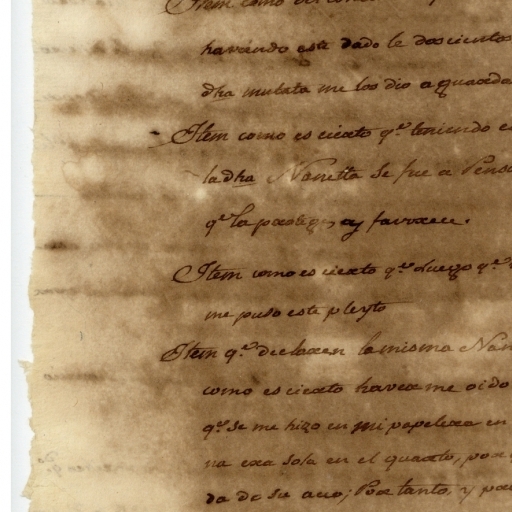 Item como es
havendo este dado le doscientos
dha mulata me los dio a guarda
Item como es cierto q.e teniendo
la dha Nanetta se fue a Pensa
q.e la proteg y favorece.
Item como es cierto q.e luego q.e
me puso este pleyto
Item q.e declaren la misma Nan
como es cierto haverme oido
q.e se me hizo en mi papelera en
na era sola en el quarto, por
da de su amo; Por tanto, y